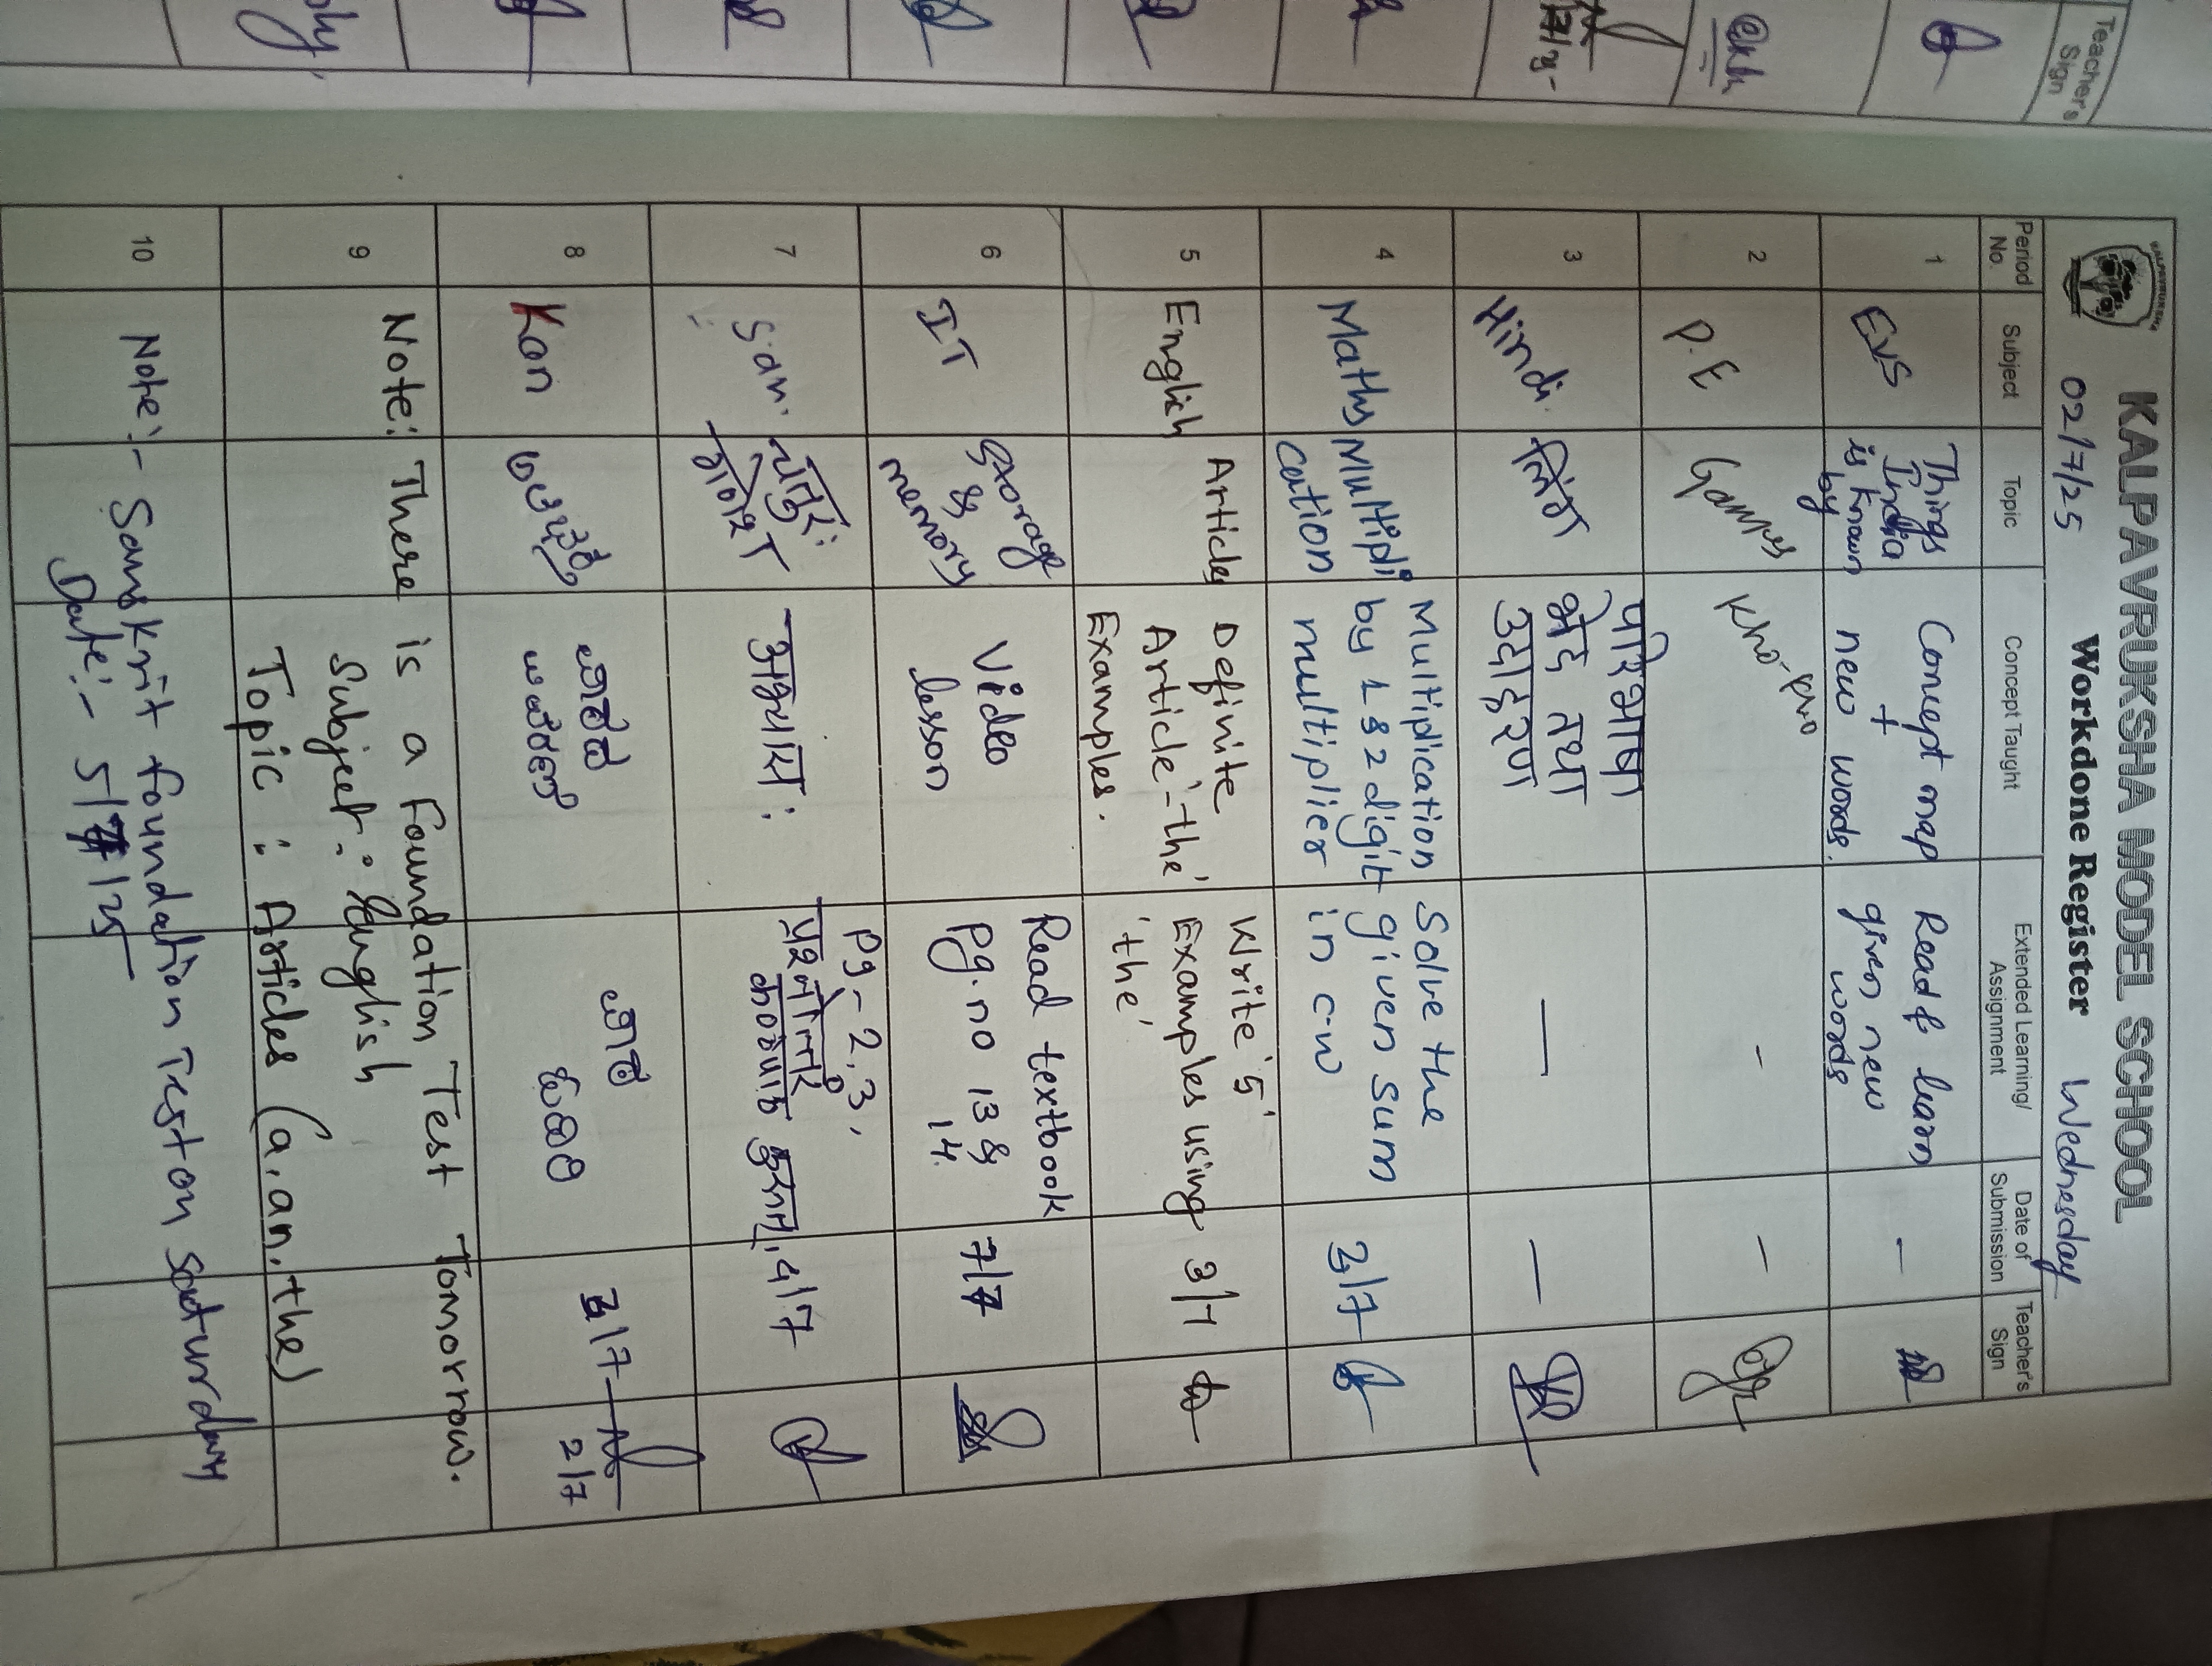 KALPAVRUKSHA MODEL SCHOOL
02/7/25 Workdone Register Wednesday
Period No. Subject Topic Concept Taught Extended Learning/ Assignment Date of Submission Teacher's Sign
1 EVS Things India is known by Concept map + new words. Read & learn given new words –
2 P.E Games Kho-Kho – –
3 Hindi लिंग परिभाषा भेद तथा उदाहरण — —
4 Maths Multipli cation Multiplication by 1 & 2 digit multiplier Solve the given sum in cw
5 English Articles Definite Article-'the' Examples. Write '5' Examples using 'the' 3/7
6 IT Storage & memory Video lesson Read textbook Pg.no 13 & 14. 7/7
7 San. अभ्यासः Pg- 2,3, 4/7
8 Kan 2/7
9 Note: There is a Foundation Test Tomorrow.
Subject : English
Topic : Articles (a, an, the)
10 Note:- Sanskrit foundation Test on saturday
Date:- 5/7/25
Teacher's Sign